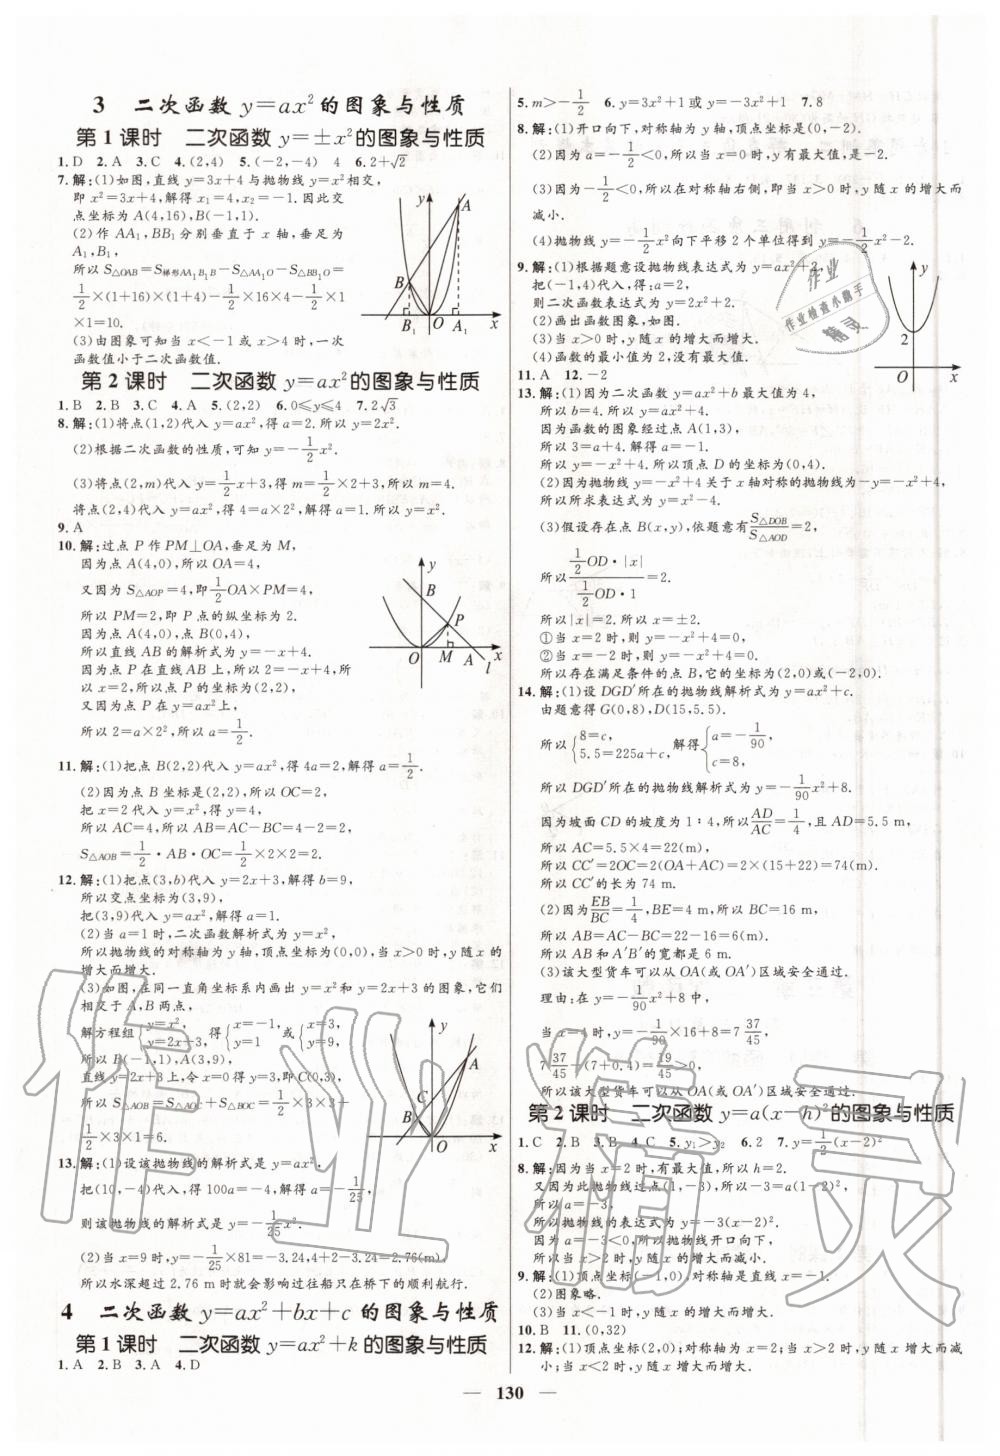 3 二次函数 y=ax²的图象与性质
第1课时 二次函数 y=±x²的图象与性质
1.D 2.A 3.C 4.(2,4) 5.(-2,-4) 4 6.2+√2
7.解:(1)如图,直线 y=3x+4 与抛物线 y=x²相交,
即 x²=3x+4,解得 x₁=4,x₂=-1.因此交
点坐标为 A(4,16),B(-1,1).
(2)作 AA₁,BB₁分别垂直于 x 轴,垂足为
A₁,B₁,
所以 S△OAB=S梯形AA₁B₁B-S△AA₁O-S△BB₁O=
1/2×(1+16)×(1+4)-1/2×16×4-1/2×1
×1=10.
(3)由图象可知当 x<-1 或 x>4 时,一次
函数值小于二次函数值.
y
A
B
B₁ O A₁ x
第2课时 二次函数 y=ax²的图象与性质
1.B 2.B 3.C 4.A 5.(2,2) 6.0≤y≤4 7.2√3
8.解:(1)将点(1,2)代入 y=ax²,得 a=2.所以 y=2x².
(2)根据二次函数的性质,可知 y=-1/2x².
(3)将点(2,m)代入 y=1/2x+3,得 m=1/2×2+3,所以 m=4.
将点(2,4)代入 y=ax²,得 4=a×2²,解得 a=1.所以 y=x².
9.A
10.解:过点 P 作 PM⊥OA,垂足为 M,
因为点 A(4,0),所以 OA=4,
又因为 S△AOP=4,即1/2OA×PM=4,
所以 PM=2,即 P 点的纵坐标为 2.
因为点 A(4,0),点 B(0,4),
所以直线 AB 的解析式为 y=-x+4.
因为点 P 在直线 AB 上,所以 2=-x+4,所
以 x=2,所以点 P 的坐标为(2,2),
又因为点 P 在 y=ax²上,
所以 2=a×2²,所以 a=1/2.
y
B
P
O M A x
l
11.解:(1)把点 B(2,2)代入 y=ax²,得 4a=2,解得 a=1/2.
(2)因为点 B 坐标是(2,2),所以 OC=2,
把 x=2 代入 y=x²,得 y=4,
所以 AC=4,所以 AB=AC-BC=4-2=2,
S△AOB=1/2·AB·OC=1/2×2×2=2.
12.解:(1)把点(3,b)代入 y=2x+3,解得 b=9,
所以交点坐标为(3,9),
把(3,9)代入 y=ax²,解得 a=1.
(2)当 a=1 时,二次函数解析式为 y=x²,
所以抛物线的对称轴为 y 轴,顶点坐标为(0,0),当 x>0 时,y 随 x 的
增大而增大.
(3)如图,在同一直角坐标系内画出 y=x²和 y=2x+3 的图象,它们
相交于 A,B 两点,
解方程组{y=x², y=2x+3, 得{x=-1, y=1 或{x=3, y=9,
所以 B(-1,1),A(3,9),
直线 y=2x+3 上,令 x=0 得 y=3,即 C(0,3),
所以 S△AOB=S△AOC+S△BOC=1/2×3×3+
1/2×3×1=6.
y
A
C
B
O x
13.解:(1)设该抛物线的解析式是 y=ax².
把(10,-4)代入,得 100a=-4,解得 a=-1/25,
则该抛物线的解析式是 y=-1/25x².
(2)当 x=9 时,y=-1/25×81=-3.24,4+2-3.24=2.76(m).
所以水深超过 2.76 m 时就会影响过往船只在桥下的顺利航行.
4 二次函数 y=ax²+bx+c 的图象与性质
第1课时 二次函数 y=ax²+k 的图象与性质
1.A 2.B 3.A 4.D
5.m>-1/2 6.y=3x²+1 或 y=-3x²+1 7.8
8.解:(1)开口向下,对称轴为 y 轴,顶点坐标是(0,-2).
(2)因为 a=-1/2<0,所以当 x=0 时,y 有最大值,是-2.
(3)因为-1/2<0,所以在对称轴右侧,即当 x>0 时,y 随 x 的增大而
减小.
(4)抛物线 y=-1/2x²向下平移 2 个单位得到 y=-1/2x²-2.
9.解:(1)根据题意设抛物线表达式为 y=ax²+2,
把(-1,4)代入,得:a=2,
则二次函数表达式为 y=2x²+2.
(2)画出函数图象,如图.
(3)当 x>0 时,y 随 x 的增大而增大.
(4)函数的最小值为 2,没有最大值.
y
2
O x
11.A 12.-2
13.解:(1)因为二次函数 y=ax²+b 最大值为 4,
所以 b=4.所以 y=ax²+4.
因为函数的图象经过点 A(1,3),
所以 3=a+4.解得 a=-1.
所以 y=-x²+4.所以顶点 D 的坐标为(0,4).
(2)因为抛物线 y=-x²+4 关于 x 轴对称的抛物线为-y=-x²+4,
所以所求表达式为 y=x²-4.
(3)假设存在点 B(x,y),依题意有S△DOB/S△AOD=2,
所以 (1/2OD·|x|)/(1/2OD·1)=2.
所以|x|=2.所以 x=±2.
①当 x=2 时,则 y=-x²+4=0.
②当 x=-2 时,则 y=-x²+4=0.
所以存在满足条件的点 B,它的坐标为(2,0)或(-2,0).
14.解:(1)设 DGD′所在的抛物线解析式为 y=ax²+c.
由题意得 G(0,8),D(15,5.5).
所以{8=c, 5.5=225a+c, 解得{a=-1/90, c=8.
所以 DGD′所在的抛物线解析式为 y=-1/90x²+8.
因为坡面 CD 的坡度为 1∶4,所以AD/AC=1/4,且 AD=5.5 m,
所以 AC=5.5×4=22(m).
所以 CC′=2OC=2(OA+AC)=2×(15+22)=74(m).
所以 CC′的长为 74 m.
(2)因为EB/BC=1/4,BE=4 m,所以 BC=16 m,
所以 AB=AC-BC=22-16=6(m).
所以 AB 和 A′B′的宽都是 6 m.
(3)该大型货车可以从 OA(或 OA′)区域安全通过.
理由:在 y=-1/90x²+8 中,
当 x=4 时,y=-1/90×16+8=7 37/45,
7 37/45-(7+0.4)=19/45>0,
所以该大型货车可以从 OA(或 OA′)区域安全通过.
第2课时 二次函数 y=a(x-h)²的图象与性质
1.C 2.B 3.B 4.C 5.y₁>y₂ 6.2 7.y=1/2(x-2)²
8.解:因为当 x=2 时,有最大值,所以 h=2.
又因为此抛物线过点(1,-3),所以-3=a(1-2)².
所以 a=-3,
所以抛物线的表达式为 y=-3(x-2)².
因为 a=-3<0,所以抛物线开口向下,
所以当 x>2 时,y 随 x 的增大而减小.
9.解:(1)顶点坐标(-1,0),对称轴是直线 x=-1.
(2)图象略.
(3)当 x<-1 时,y 随 x 的增大而增大.
10.B 11.(0,32)
12.解:(1)顶点坐标(2,0);对称轴为 x=2;当 x>2 时,y 随 x 增大而减
小,当 x<2 时,y 随 x 增大而增大.
130
作业
作业检查小助手
精灵
作业精灵